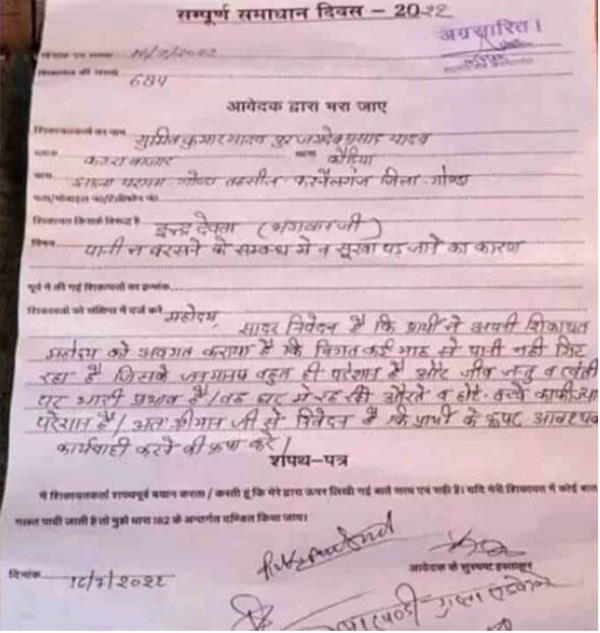 सम्पूर्ण समाधान दिवस – 2022
अग्रसारित।
दिनांक एवं समय 16/7/2022
शिकायत की संख्या 684
आवेदक द्वारा भरा जाए
शिकायतकर्ता का नाम सुमित कुमार यादव पुत्र जगदेव प्रसाद यादव
ब्लाक कटरा बाजार थाना कौड़िया
ग्राम झाला परगना गोण्डा तहसील-करनैलगंज जिला-गोण्डा
पता/मोबाइल नं0/टेलीफोन नं0
शिकायत किसके विरूद्ध है इन्द्र देवता (भगवान जी)
विषय पानी न बरसने के सम्बन्ध में व सूखा पड़ जाने का कारण
पूर्व में की गई शिकायतों का क्रमांक
शिकायतों को संक्षिप्त में दर्ज करें महोदय,
सादर निवेदन है कि प्रार्थी ने अपनी शिकायत
महोदय को अवगत कराया है कि विगत कई माह से पानी नहीं गिर
रहा है जिससे जनमानस बहुत ही परेशान है और जीव जन्तु व खेती
पर भारी प्रभाव है। घर में रह रही औरते व छोटे बच्चे काफी
परेशान हैं। अतः श्रीमान जी से निवेदन है कि प्रार्थी के ऊपर आवश्यक
कार्यवाही करने की कृपा करें।
शपथ-पत्र
मैं शिकायतकर्ता शपथपूर्वक बयान करता / करती हूं कि मेरे द्वारा ऊपर लिखी गई बातें सत्य एवं सही है। यदि मेरी शिकायत में कोई बात
गलत पायी जाती है तो मुझे धारा 182 के अन्तर्गत दण्डित किया जाय।
आवेदक के सुस्पष्ट हस्ताक्षर
दिनांक 16/7/2022